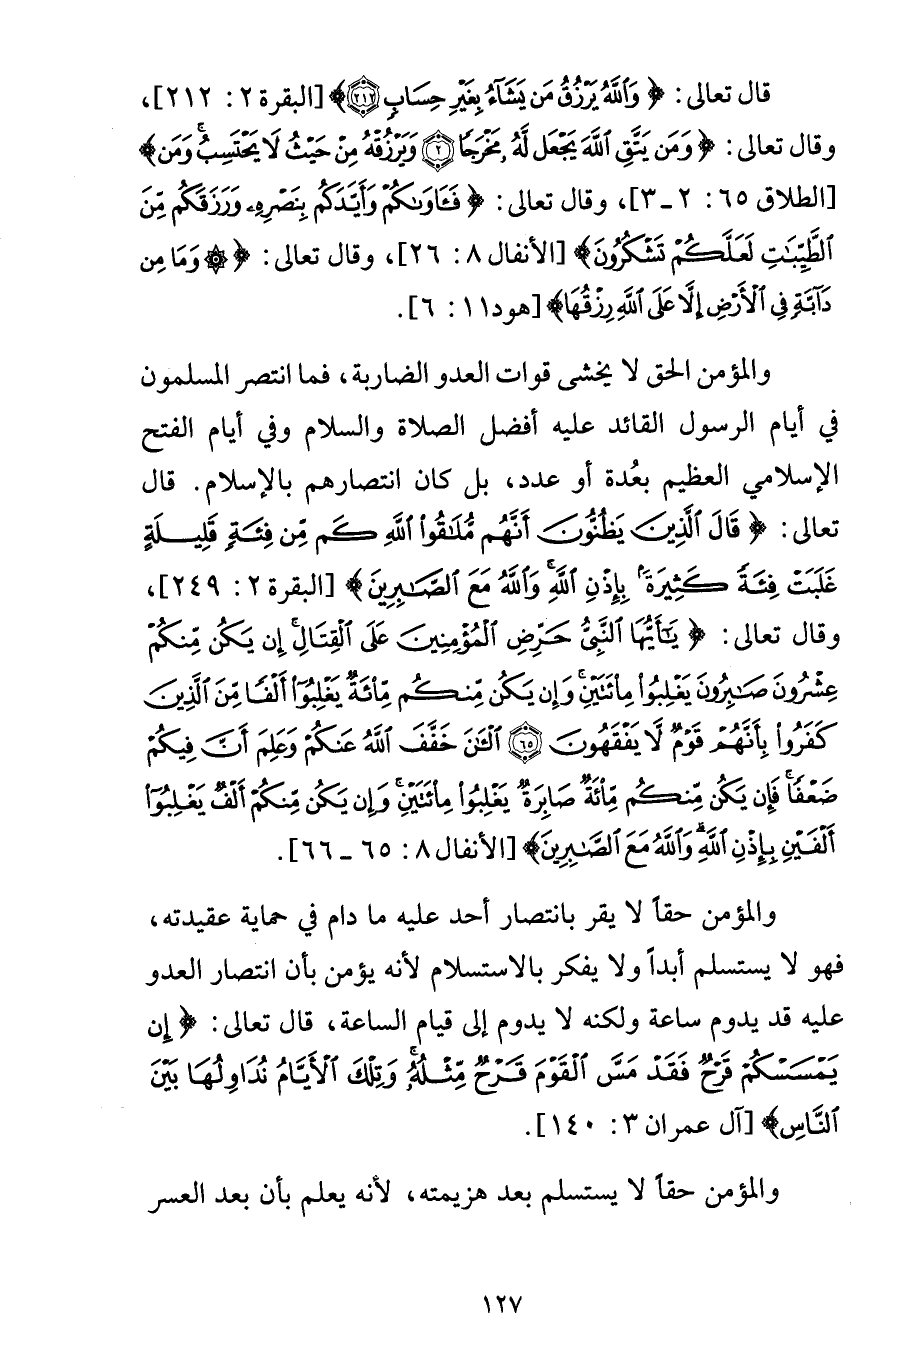 قال تعالى: ﴿ وَٱللَّهُ يَرْزُقُ مَن يَشَآءُ بِغَيْرِ حِسَابٍ ٢١٢﴾ [البقرة ٢: ٢١٢]،
وقال تعالى: ﴿ وَمَن يَتَّقِ ٱللَّهَ يَجْعَل لَّهُۥ مَخْرَجًا ٢ وَيَرْزُقْهُ مِنْ حَيْثُ لَا يَحْتَسِبُ ۚ وَمَن ﴾
[الطلاق ٦٥: ٢ـ٣]، وقال تعالى: ﴿ فَـَٔاوَىٰكُمْ وَأَيَّدَكُم بِنَصْرِهِۦ وَرَزَقَكُم مِّنَ
ٱلطَّيِّبَـٰتِ لَعَلَّكُمْ تَشْكُرُونَ﴾ [الأنفال ٨: ٢٦]، وقال تعالى: ﴿ ۞ وَمَا مِن
دَآبَّةٍ فِى ٱلْأَرْضِ إِلَّا عَلَى ٱللَّهِ رِزْقُهَا﴾ [هود١١: ٦].
والمؤمن الحق لا يخشى قوات العدو الضاربة، فما انتصر المسلمون
في أيام الرسول القائد عليه أفضل الصلاة والسلام وفي أيام الفتح
الإسلامي العظيم بعُدة أو عدد، بل كان انتصارهم بالإسلام. قال
تعالى: ﴿ قَالَ ٱلَّذِينَ يَظُنُّونَ أَنَّهُم مُّلَـٰقُوا۟ ٱللَّهِ كَم مِّن فِئَةٍ قَلِيلَةٍ
غَلَبَتْ فِئَةً كَثِيرَةًۢ بِإِذْنِ ٱللَّهِ ۗ وَٱللَّهُ مَعَ ٱلصَّـٰبِرِينَ ﴾ [البقرة ٢: ٢٤٩]،
وقال تعالى: ﴿ يَـٰٓأَيُّهَا ٱلنَّبِىُّ حَرِّضِ ٱلْمُؤْمِنِينَ عَلَى ٱلْقِتَالِ ۚ إِن يَكُن مِّنكُمْ
عِشْرُونَ صَـٰبِرُونَ يَغْلِبُوا۟ مِا۟ئَتَيْنِ ۚ وَإِن يَكُن مِّنكُم مِّا۟ئَةٌ يَغْلِبُوٓا۟ أَلْفًا مِّنَ ٱلَّذِينَ
كَفَرُوا۟ بِأَنَّهُمْ قَوْمٌ لَّا يَفْقَهُونَ ٦٥ ٱلْـَٔـٰنَ خَفَّفَ ٱللَّهُ عَنكُمْ وَعَلِمَ أَنَّ فِيكُمْ
ضَعْفًا ۚ فَإِن يَكُن مِّنكُم مِّا۟ئَةٌ صَابِرَةٌ يَغْلِبُوا۟ مِا۟ئَتَيْنِ ۚ وَإِن يَكُن مِّنكُمْ أَلْفٌ يَغْلِبُوٓا۟
أَلْفَيْنِ بِإِذْنِ ٱللَّهِ ۗ وَٱللَّهُ مَعَ ٱلصَّـٰبِرِينَ﴾ [الأنفال٨: ٦٥ ـ ٦٦].
والمؤمن حقاً لا يقر بانتصار أحد عليه ما دام في حماية عقيدته،
فهو لا يستسلم أبداً ولا يفكر بالاستسلام لأنه يؤمن بأن انتصار العدو
عليه قد يدوم ساعة ولكنه لا يدوم إلى قيام الساعة، قال تعالى: ﴿ إِن
يَمْسَسْكُمْ قَرْحٌ فَقَدْ مَسَّ ٱلْقَوْمَ قَرْحٌ مِّثْلُهُۥ ۚ وَتِلْكَ ٱلْأَيَّامُ نُدَاوِلُهَا بَيْنَ
ٱلنَّاسِ﴾ [آل عمران ٣: ١٤٠].
والمؤمن حقاً لا يستسلم بعد هزيمته، لأنه يعلم بأن بعد العسر
١٢٧